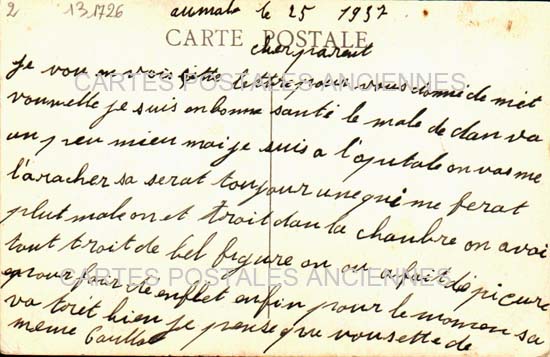 2 13.1726
aumale le 25 1937
CARTE POSTALE
cher parent
je vou m vois sette lettre pour vous donné de mét
CARTES POSTALES ANCIENNES
vouvelle je suis en bonne santé le male de dan va
un peu mieu mai je suis a l'opitale on vas me
l'aracher sa serat toujour une qui me ferat
plut male on et troit dan la chambre on avoi
tout troit de bel figure on ou a fait dé picure
CARTES POSTALES ANCIENNES
pour fair de enflet enfin pour le momen sa
va trét bien je pense que vous ette de
meme